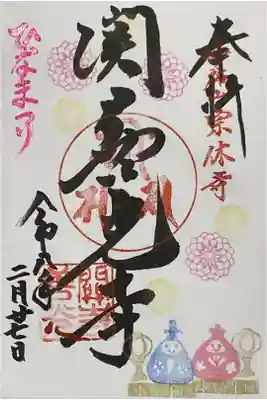 奉拝
宗休寺
関善光寺
ひなまつり
令和
二月廿七日